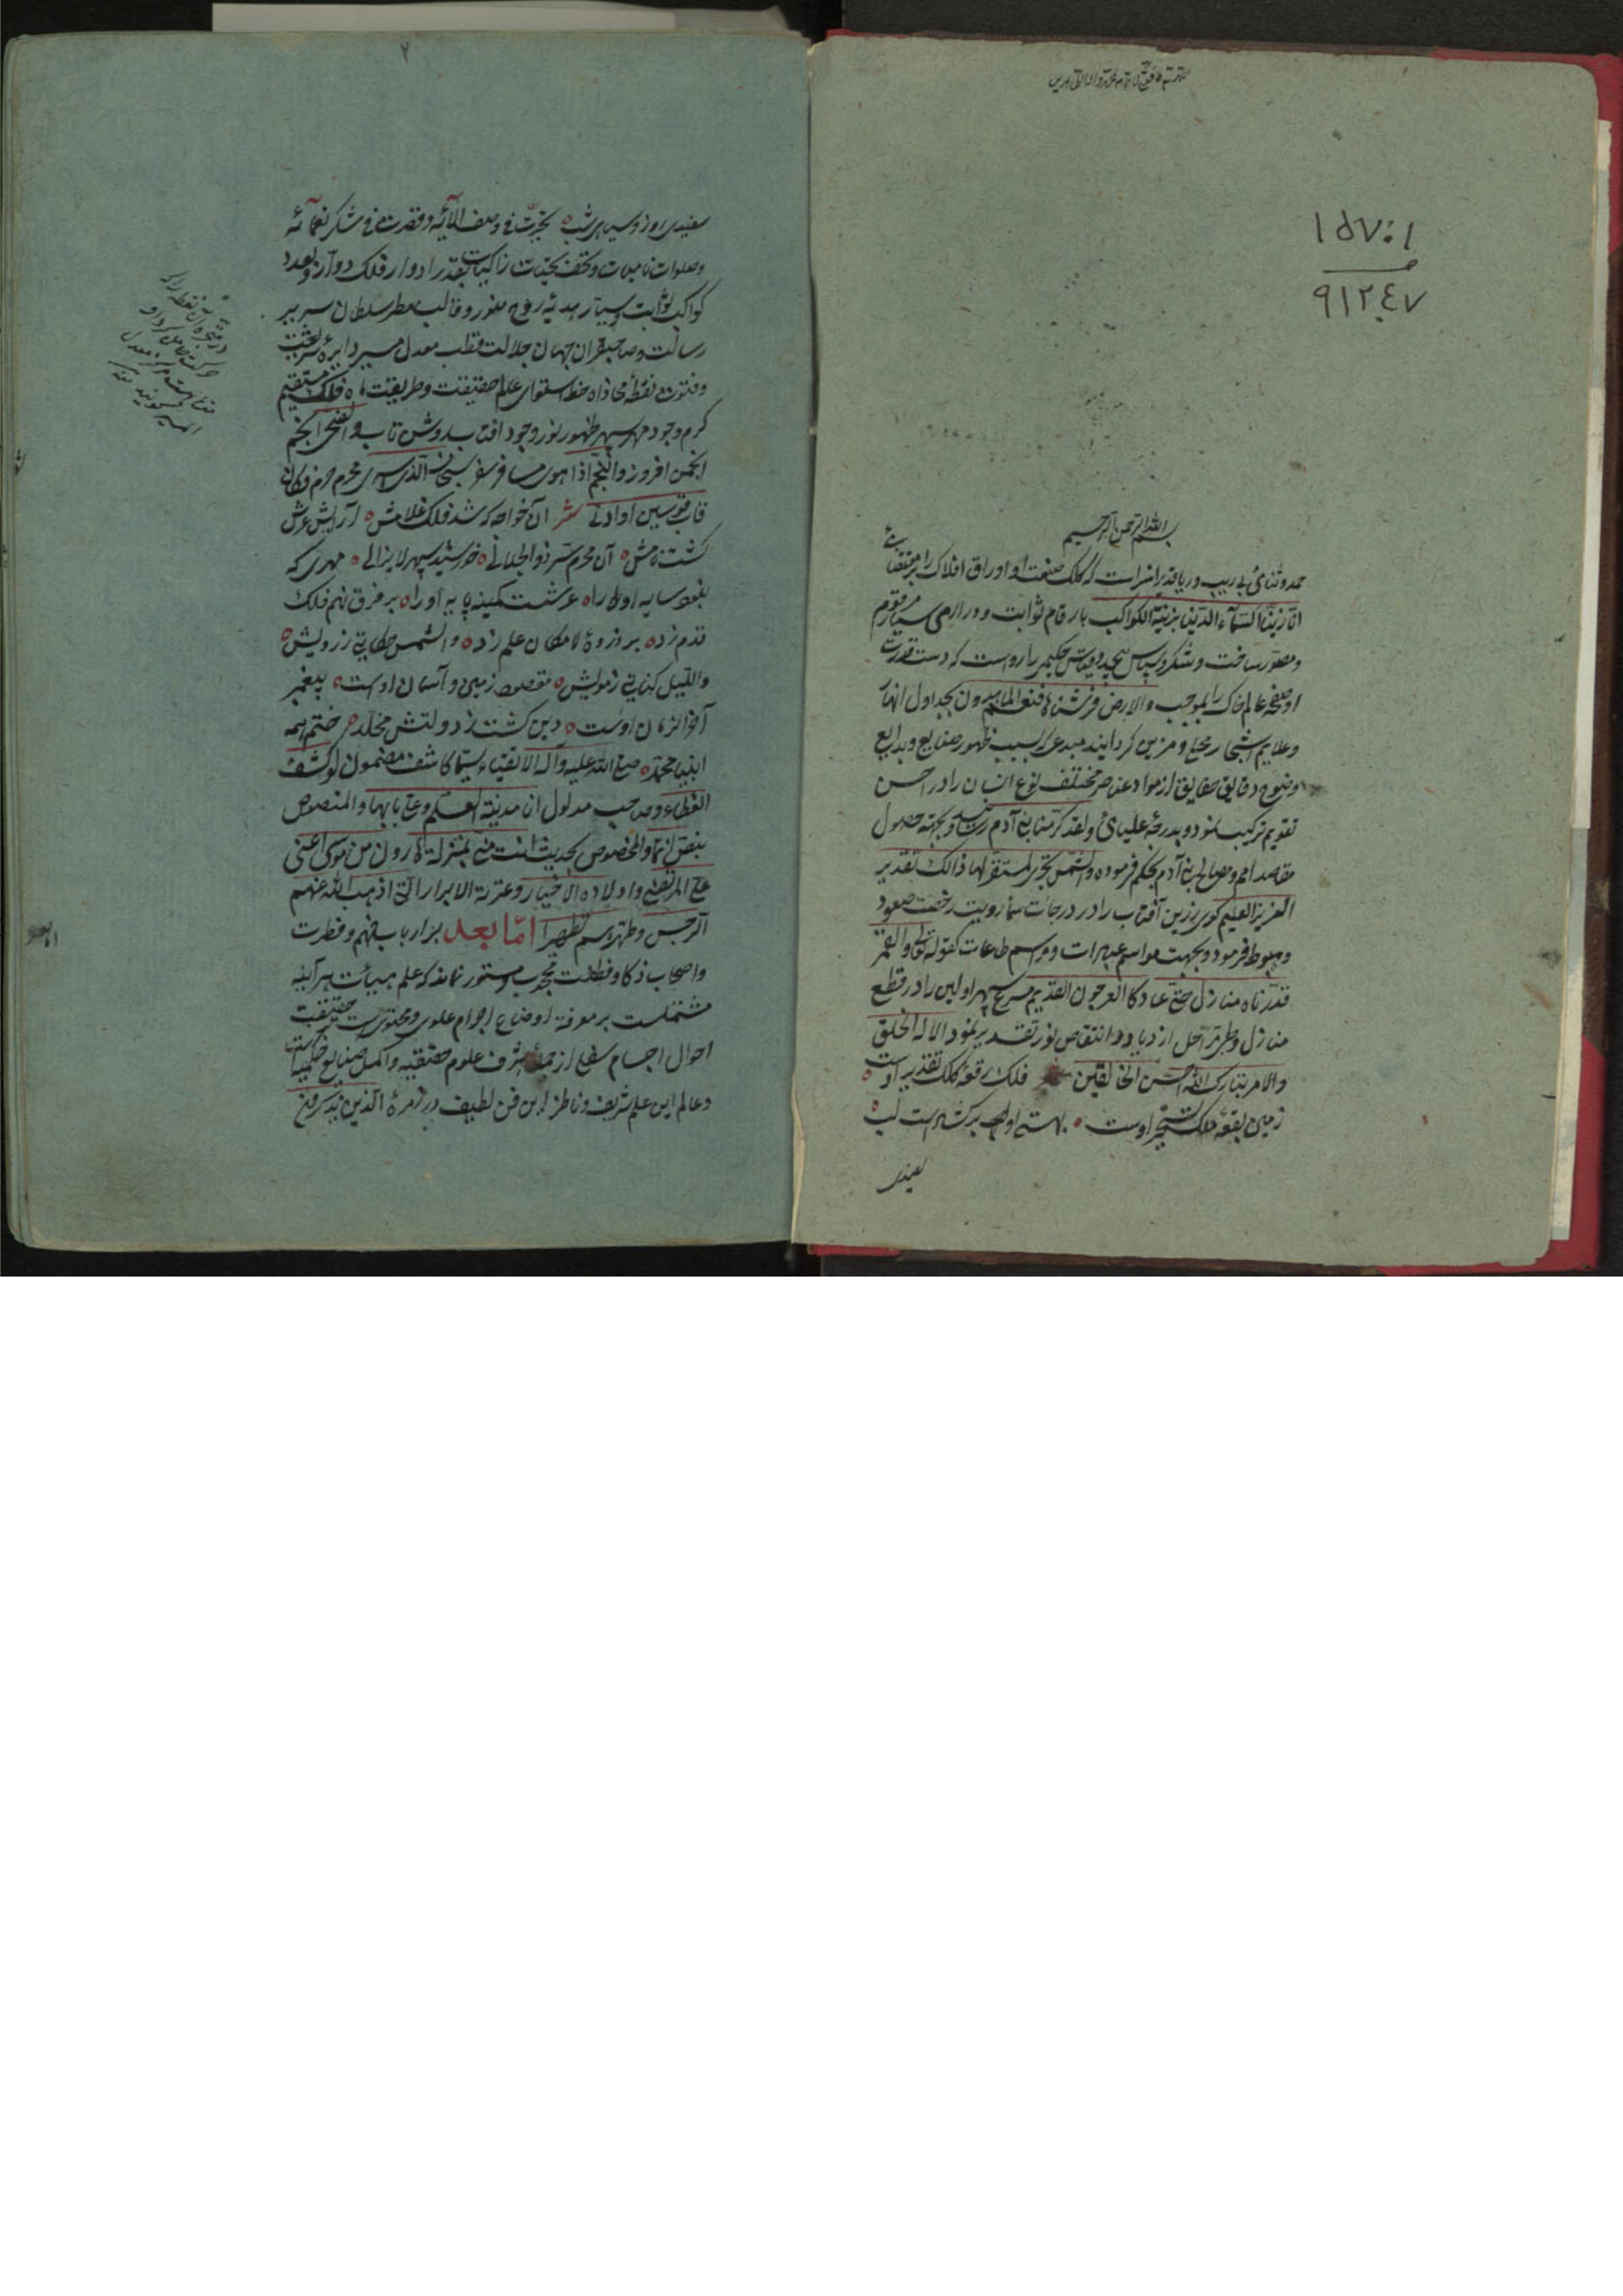 ١٥٧٠١
٩١٢٤٧
بسم الله الرحمن الرحيم
حمد و ثنائی بی ریب و ریا قدیرا سزاست که کلک صنعت او اوراق افلاک را بمقتضای
انا زينا السماء الدنيا بزينة الكواكب بارقام ثوابت و دراری سیار مرقوم
و مصور ساخت و شکر و سپاس بیحد و قیاس حکیمی را رواست که دست قدرت
او صفحه عالم خاک را بموجب والارض فرشناها فنعم الماهدون بجداول انهار
و علایم اشجار محلی و مزین گردانید مبدعی که بسبب ظهور صنایع و بدایع
و وضوح دقایق حقایق از مواد عناصر مختلف نوع انسان را در احسن
تقویم ترکیب نمود و بدرجه علیای ولقد کرمنا بنی آدم رسانید و بجهة حصول
مقاصد امم و مصالح بنی آدم بحکم فرموده والشمس تجری لمستقر لها ذالک تقدیر
العزیز العلیم گوی زرین آفتاب را در درجات سما رویت رخصت صعود
و هبوط فرمود و بجهت مواسم عبرات و مراسم طاعات کقوله تعالی والقمر
قدرناه منازل حتی عاد کالعرجون القدیم مسرع سپهر اولین را در قطع
منازل و طی مراحل ازدیاد و انتقاص نور تقدیر نمود الا له الخلق
والامر تبارک الله احسن الخالقین فلک رقعه کلک تقدیر اوست
زمین بقعه ملک تسخیر اوست بهستی او هر که شد است لب
سفیدی
٢
سفیدی روز و سیاهی شب تحیرت فی وصف آلائه وقصرت فی شکر نعمائه
و صلوات نامیات و تحف تحیات زاکیات بقدر ادوار فلک دوار و بعدد
کواکب ثوابت و سیار هدیه روح منور و قالب معطر سلطان سریر
رسالت و صاحبقران جهان جلالت قطب معدل مسیر دایره شریعت
و فتوت نقطه محاذاه خط استوای عالم حقیقت و طریقت ماه فلک مستقیم
کرم وجود مهر سپهر ظهور نور وجود آفتاب روشن تاب والضحی انجم
انجمن افروز والنجم اذا هوی مسافر سفر سبحان الذی اسری محرم حرم فکان
قاب قوسین او ادنی شعر آن خواجه که شد فلک غلامش آرایش عرش
گشت نامش آن محرم سر ذوالجلالی خورشید سپهر لایزالی مهری که
نبود سایه او را عرشست کمینه پایه او را بر فرق نهم فلک
قدم زده بر ذروه لامکان علم زده والشمس حکایتی ز رویش
واللیل کنایتی ز مویش مقصود زمین و آسمان اوست پیغمبر
آخر الزمان اوست دین گشت ز دولتش مخلد ختم همه
انبیا محمد صلی الله علیه وآله الاتقیاء سیما کاشف مضمون لو کشف
الغطاء و صاحب مدلول انا مدینة العلم وعلی بابها والمنصوص
بنص انما والمخصوص بحدیث انت منی بمنزلة هارون من موسی اعنی
علی المرتضی واولاده الاخیار وعترته الابرار الذین اذهب الله عنهم
الرجس وطهرهم تطهیرا اما بعد بر ارباب فهم و فطرت
و اصحاب ذکا و فطنت محجوب و مستور نماند که علم هیئات هر آینه
مشتملست بر معرفة اوضاع اجرام علوی و محتویست حقیقت
احوال اجسام سفلی از جمله اشرف علوم حقیقیه و اکمل صنایع حکمیه است
و عالم این علم شریف و ناظر این فن لطیف در زمره الذین یذکرون